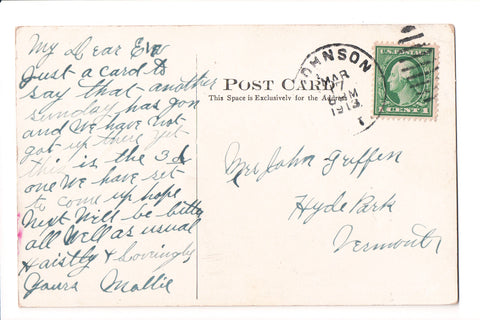 My Dear Eva
Just a card to
say that another
Sunday has gon
and we have not
got up there yet
this is the 3d
one we have set
to come up hope
next will be better
all well as usual
Haistly & Lovingly
Yours Mollie
POST CARD
This Space is Exclusively for the Address
JOHNSON
MAR
17
PM
1913
U.S. POSTAGE
1 CENT 1
Mrs John Griffen
Hyde Park
Vermont